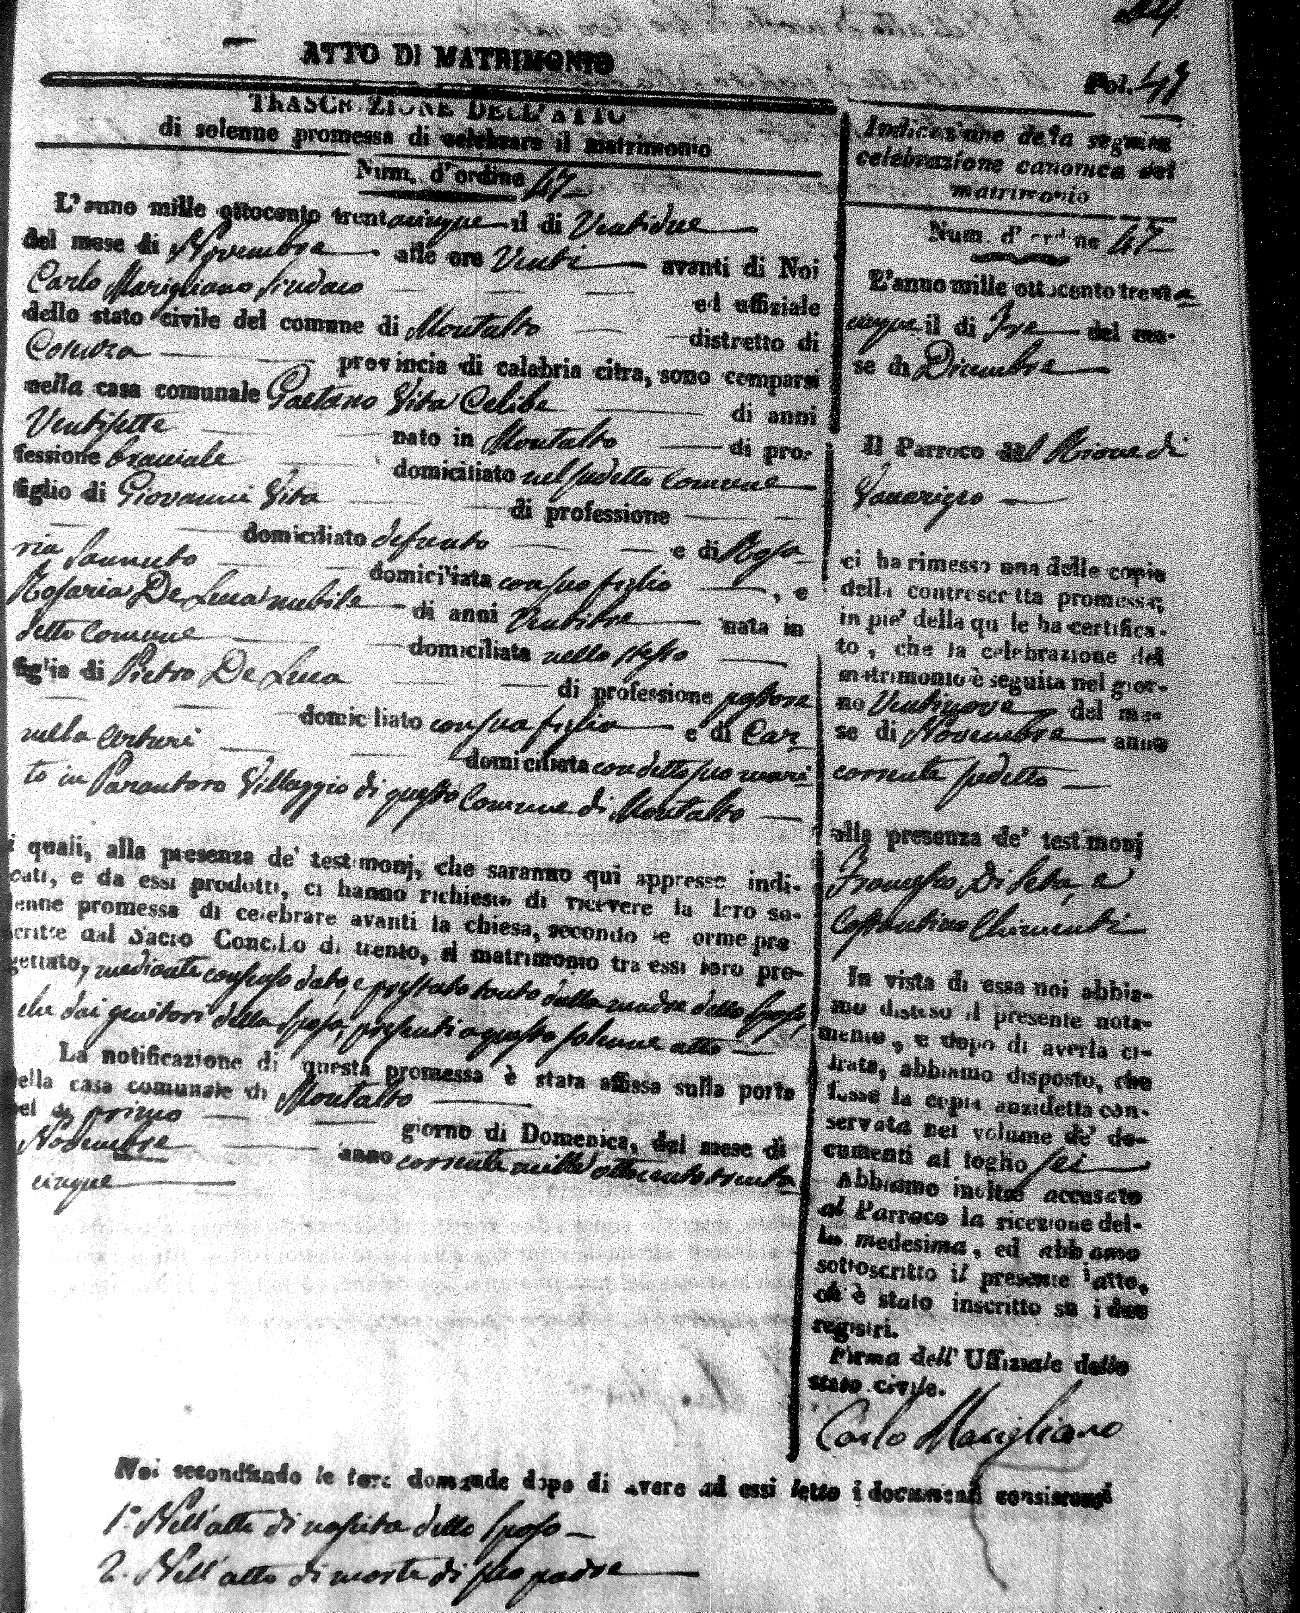 ATTO DI MATRIMONIO
Fol. 49
TRASCRIZIONE DELL'ATTO
di solenne promessa di celebrare il matrimonio
Num. d'ordine 47
L'anno mille ottocento trentacinque il di Ventidue
del mese di Novembre alle ore Venti avanti di Noi
Carlo Marigliano Sindaco ed uffiziale
dello stato civile del comune di Montalto distretto di
Cosenza provincia di calabria citra, sono comparsi
nella casa comunale Gaetano Vita Celibe di anni
Ventisette nato in Montalto di pro-
fessione bracciale domiciliato nel sudetto Comune
figlio di Giovanni Vita di professione
domiciliato defunto e di Rosa
ria Sannuto domiciliata con suo figlio, e
Rosaria De Luca nubile di anni Ventitre nata in
detto Comune domiciliata nello stesso
figlia di Pietro De Luca di professione pastore
domiciliato con sua figlia e di Car
mela Arturi domiciliata con detto suo mari
to in Parantoro Villaggio di questo Comune di Montalto
i quali, alla presenza de' testimonj, che saranno qui appresse indi-
cati, e da essi prodotti, ci hanno richiesto di ricevere la loro so-
lenne promessa di celebrare avanti la chiesa, secondo le orme pre
scritte dal Sacro Concilio di trento, il matrimonio tra essi loro pro-
gettato, mediante consenso dato, e prestato tanto dalla madre dello Sposo,
che dai genitori della Sposa, presenti a questo solenne atto
La notificazione di questa promessa è stata affissa sulla porta
della casa comunale di Montalto
nel di primo giorno di Domenica, del mese di
Novembre anno corrente mille ottocento trenta
cinque
Indicazione della seguita
celebrazione canonica del
matrimonio
Num. d'ordine 47
L'anno mille ottocento trenta
cinque il di Tre del me-
se di Dicembre
Il Parroco del Rione di
Vaccarizzo
ci ha rimesso una delle copie
della controscritta promessa,
in pie' della quale ha certifica-
to, che la celebrazione del
matrimonio è seguita nel gior-
no Ventinove del me-
se di Novembre anno
corrente sudetto
alla presenza de' testimonj
Francesco Di Seta, e
Costantino Chimenti
In vista di essa noi abbia-
mo disteso il presente nota-
mento, e dopo di averla ci-
frata, abbiamo disposto, che
fosse la copia anzidetta con-
servata nel volume de' do-
cumenti al foglio sei
Abbiamo inoltre accusato
al Parroco la ricezione del-
la medesima, ed abbiamo
sottoscritto il presente atto,
ch' è stato inscritto su i due
registri.
Firma dell' Uffiziale dello
stato civile.
Carlo Marigliano
Noi secondando le loro domande dopo di avere ad essi letto i documenti consistenti
1° Nell'atto di nascita dello Sposo
2. Nell'atto di morte di suo padre